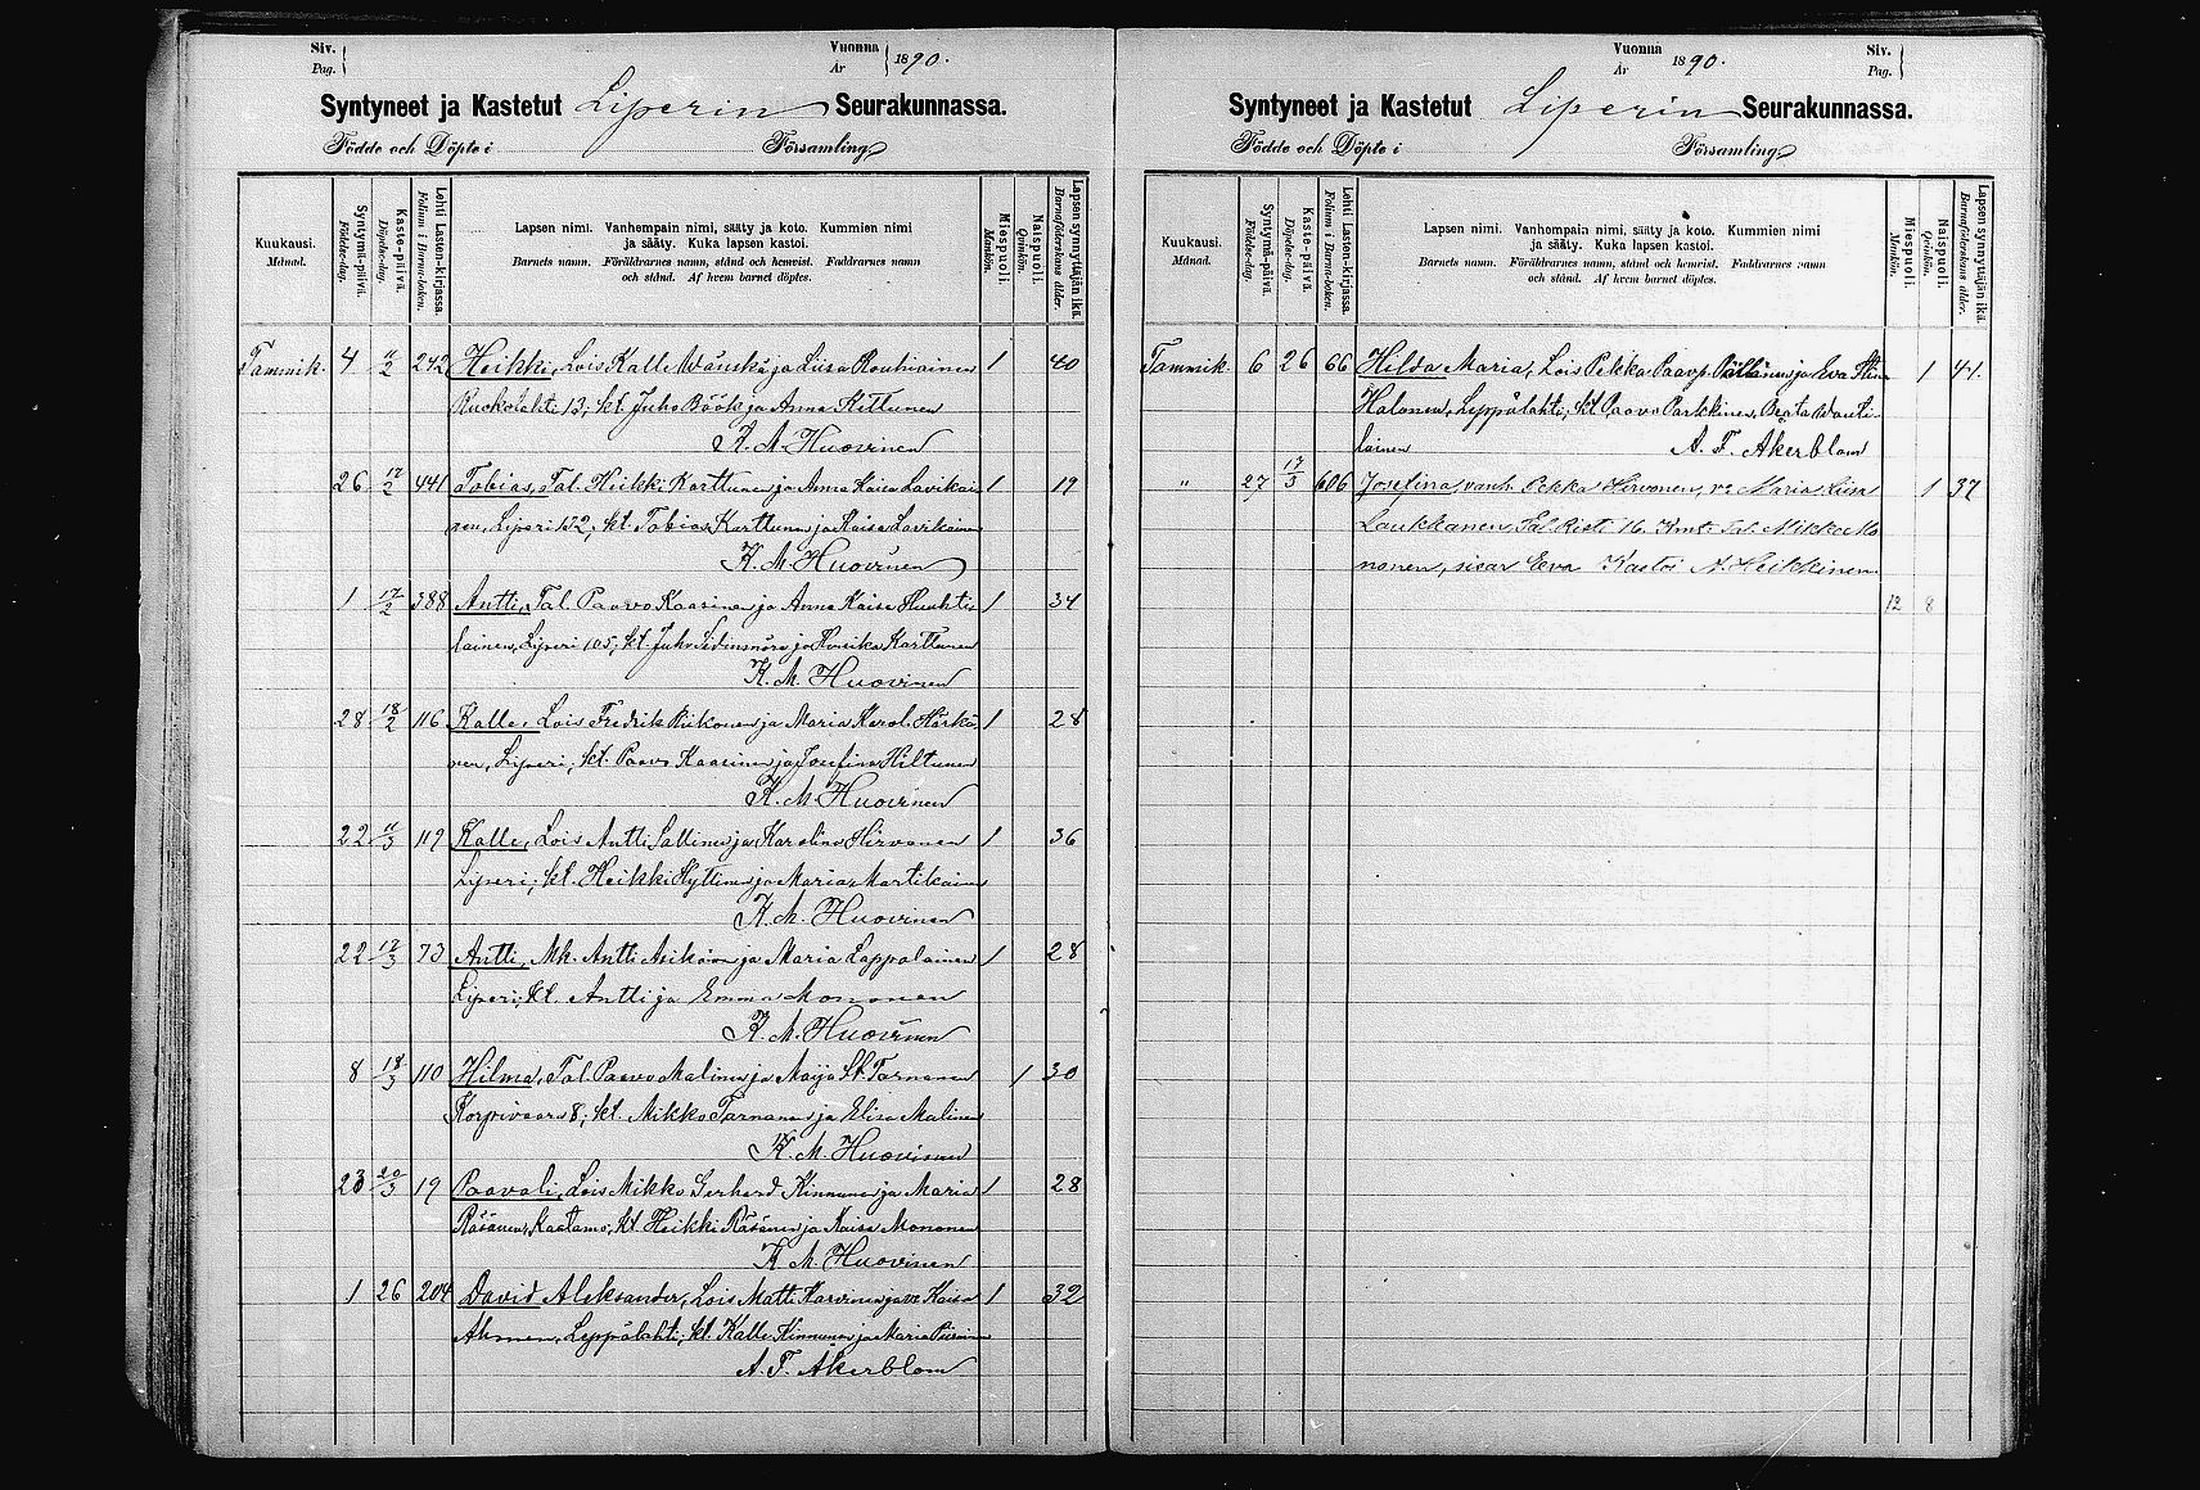 Siv.
Pag.
Vuonna
År
1890.
Syntyneet ja Kastetut Liperin Seurakunnassa.
Födde och Döpte i Församling
Kuukausi.
Månad.
Syntymä-päivä.
Födelse-dag.
Kaste-päivä.
Döpelse-dag.
Lehti Lasten-kirjassa.
Folium i Barna-boken.
Lapsen nimi. Vanhempain nimi, sääty ja koto. Kummien nimi
ja sääty. Kuka lapsen kastoi.
Barnets namn. Föräldrarnes namn, stånd och hemvist. Faddrarnes namn
och stånd. Af hvem barnet döptes.
Miespuoli.
Mankön.
Naispuoli.
Qvinkön.
Lapsen synnyttäjän ikä.
Barnaföderskans ålder.
Tammik. 4 11/2 242 Heikki, Lois Kalle Wänskä ja Liisa Rouhiainen 1 40
13; kt. Juho Böök ja Anna Kettunen
K. M. Huovinen
26 17/2 441 Tobias, Tal. Heikki Karttunen ja Anna Kaisa Lavikai- 1 19
nen, Liperi 132; kt. Tobias Karttunen ja Kaisa Lavikainen
K. M. Huovinen
1 17/2 388 Antti, Tal. Paavo Kaasinen ja Anna Kaisa Huuhti- 1 34
lainen, Liperi 105; kt. Juho ja Karttunen
K. M. Huovinen
28 18/2 116 Kalle, Lois Fredrik Piikonen ja Maria Karol. Härkö- 1 28
nen, Liperi; kt. Paavo Kaasinen ja Josefina Hiltunen
K. M. Huovinen
22 11/3 119 Kalle, Lois Antti Sallinen ja Karolina Hirvonen 1 36
Liperi; kt. Heikki Hyttinen ja Maria Martikainen
K. M. Huovinen
22 17/3 73 Antti, Mk. Antti Asikainen ja Maria Lappalainen 1 28
Liperi; kt. Antti ja Emma Mononen
K. M. Huovinen
8 18/3 110 Hilma, Tal. Paavo Malinen ja Maija St. Tarnanen 1 30
Korpivaara 8; kt. Mikko Tarnanen ja Elisa Malinen
K. M. Huovinen
23 20/3 19 Paavali, Lois Mikko Gerhard Kinnunen ja Maria 1 28
Räsänen, Kaatamo; kt. Heikki Räsänen ja Kaisa Mononen
K. M. Huovinen
1 26 204 David Aleksander, Lois Matti Karvinen ja vo Kaisa 1 32
Ahonen, Leppälahti; kt. Kalle Kinnunen ja Maria Piirainen
A. F. Åkerblom
Vuonna
År
1890.
Siv.
Pag.
Syntyneet ja Kastetut Liperin Seurakunnassa.
Födde och Döpte i Församling
Kuukausi.
Månad.
Syntymä-päivä.
Födelse-dag.
Kaste-päivä.
Döpelse-dag.
Lehti Lasten-kirjassa.
Folium i Barna-boken.
Lapsen nimi. Vanhempain nimi, sääty ja koto. Kummien nimi
ja sääty. Kuka lapsen kastoi.
Barnets namn. Föräldrarnes namn, stånd och hemvist. Faddrarnes namn
och stånd. Af hvem barnet döptes.
Miespuoli.
Mankön.
Naispuoli.
Qvinkön.
Lapsen synnyttäjän ikä.
Barnaföderskans ålder.
Tammik. 6 26 66 Hilda Maria, Lois Pekka Paavp. Pöllänen ja Eva Stina 1 41.
Halonen, Leppälahti; kt. Paavo Parkkinen, Beata Wouti-
lainen A. F. Åkerblom
" 27 17/3 606 Josefina, vanh. Pekka Hirvonen, vo Maria Liisa 1 37
Laukkanen, Tal. Risti 16. Kmt: Tal. Mikko Mo
nonen, sisar Eva Kastoi A. Heikkinen.
12 8